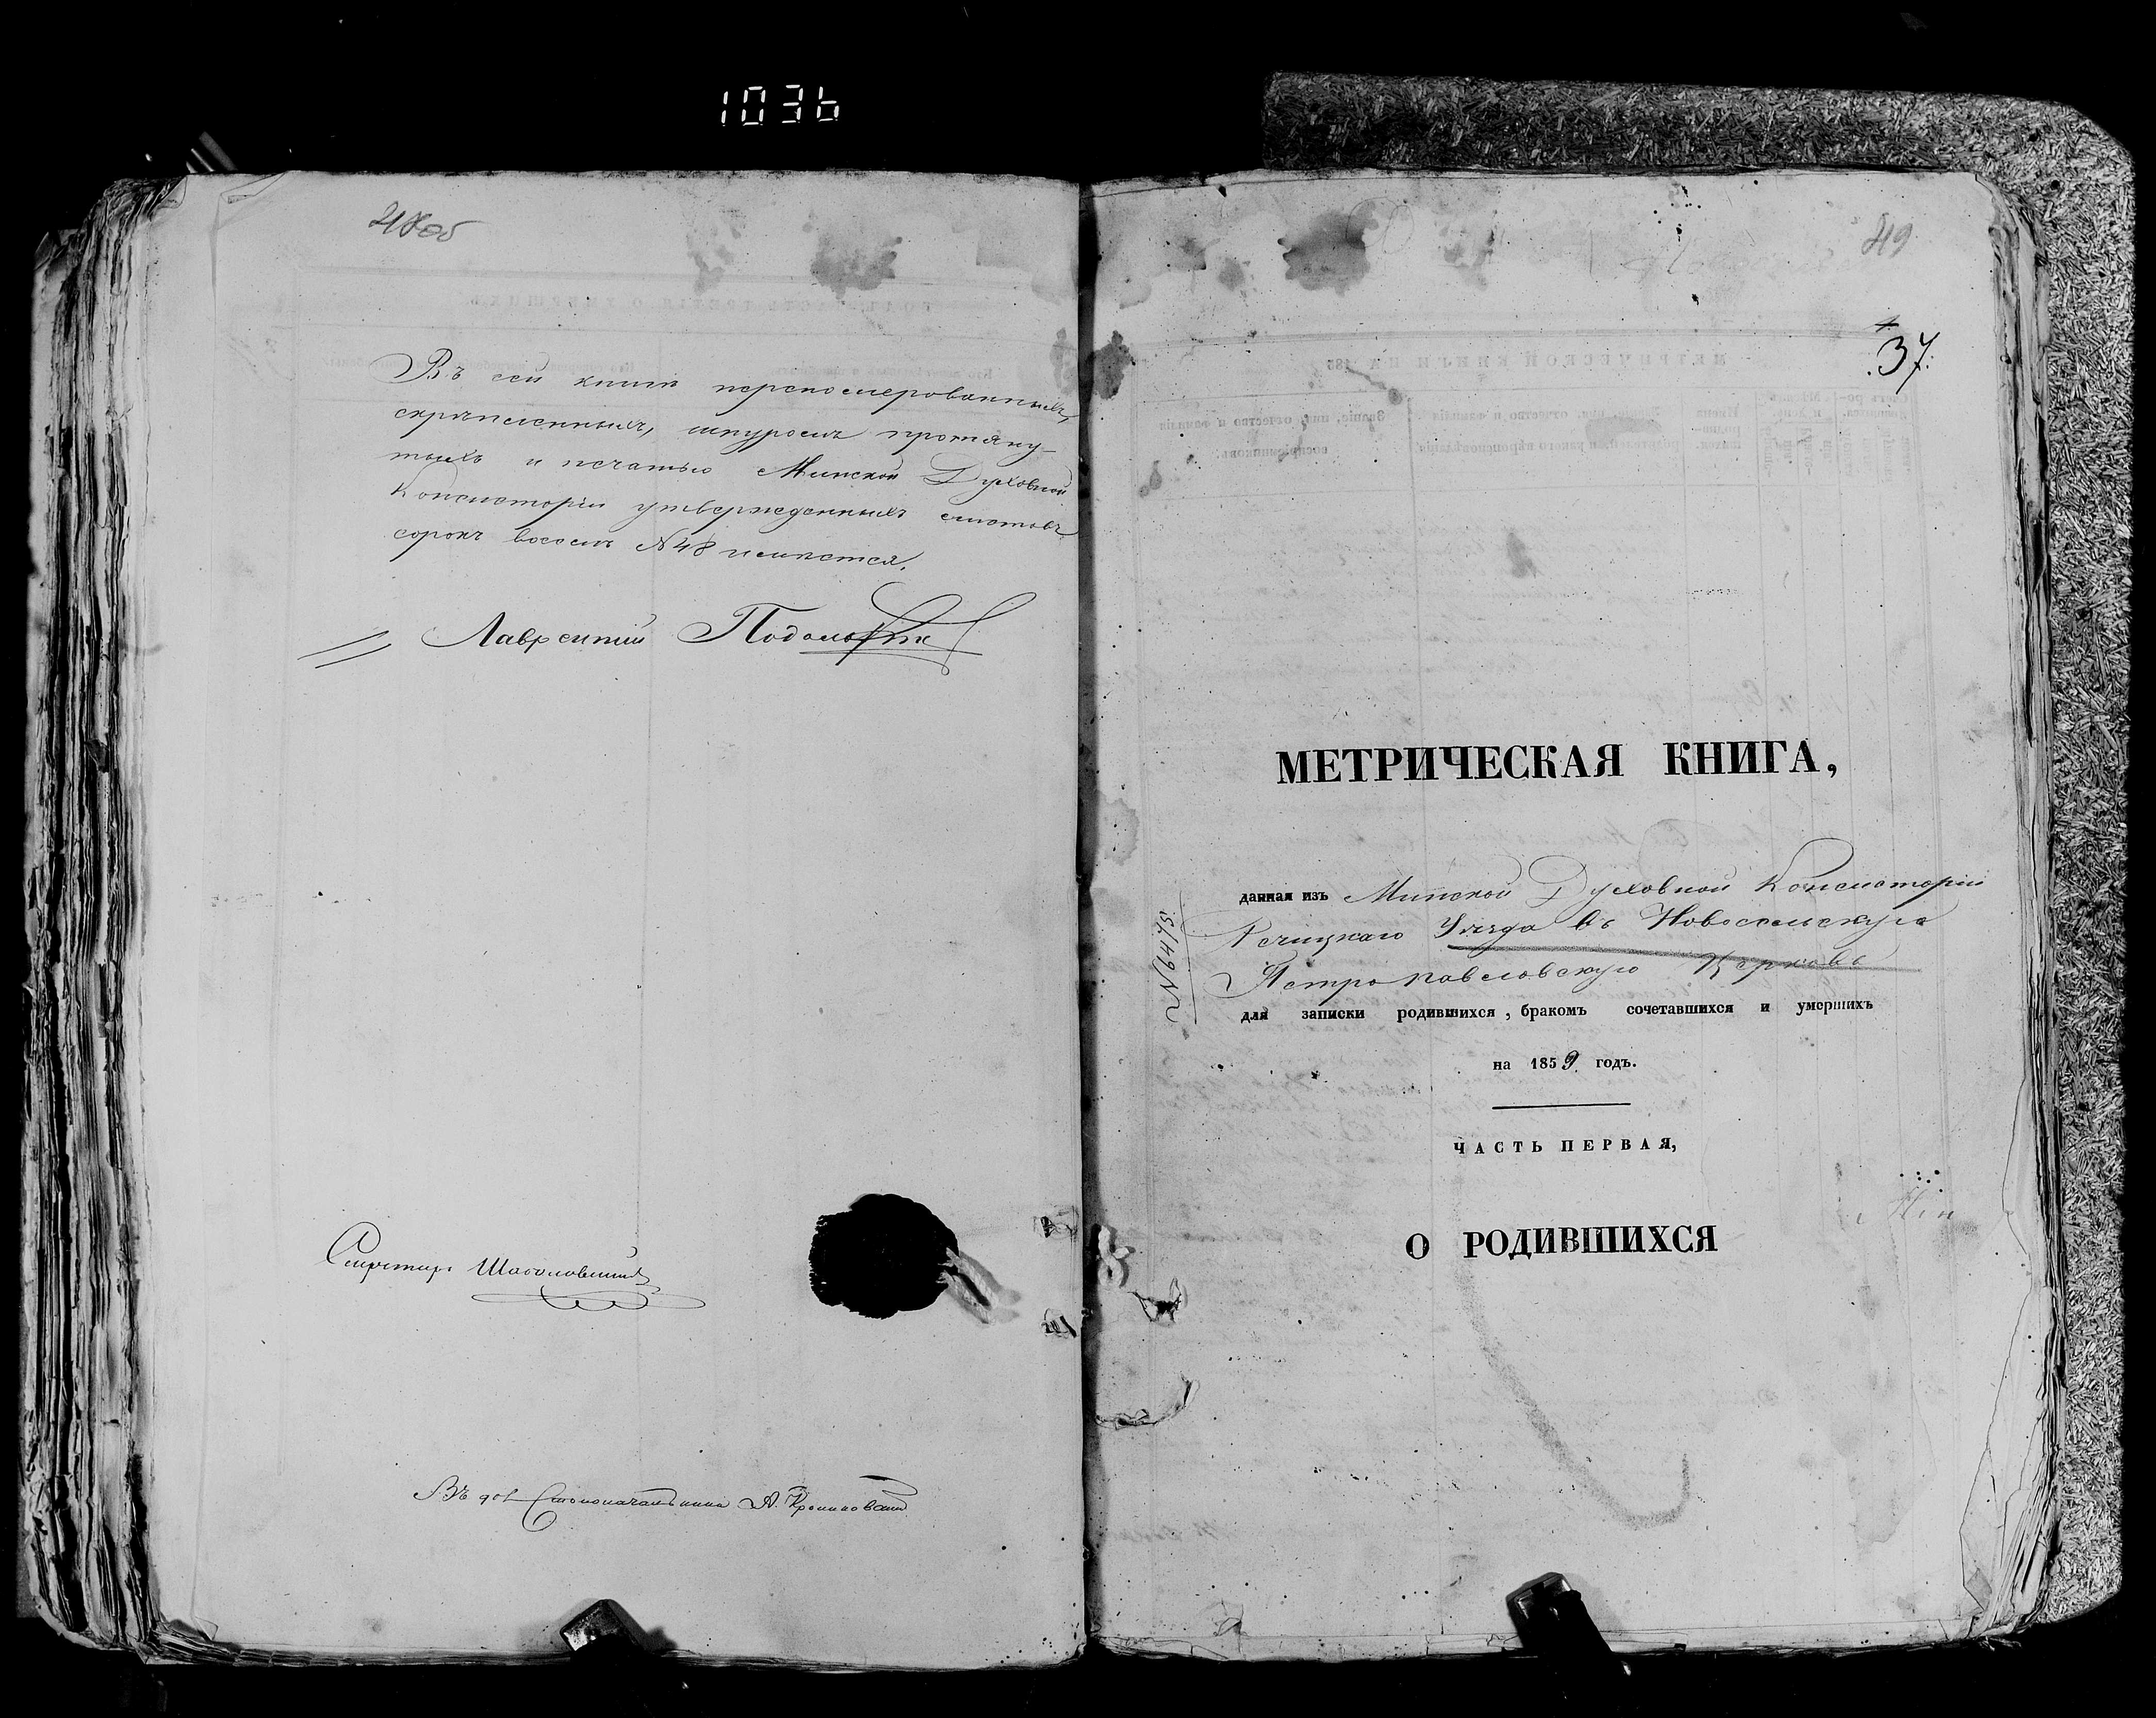 1036
48об
Въ сей книгѣ перенумерованныхъ,
скрѣпленныхъ, шнуромъ протяну-
тыхъ и печатью Минской Духовной
Консисторіи утвержденныхъ листовъ
сорокъ восемь № 48 имѣется.
Лаврентій
Секретарь
Въ дол Столоначальника А.
49
37.
МЕТРИЧЕСКАЯ КНИГА,
данная изъ Минской Духовной Консисторіи
Речицкаго Уѣзда въ Новосельскую
Петропавловскую Церковь
для записки родившихся, бракомъ сочетавшихся и умершихъ
на 1859 годъ.
ЧАСТЬ ПЕРВАЯ,
О РОДИВШИХСЯ
№ 6475